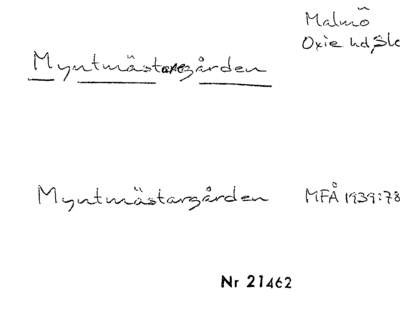 Malmö
Oxie hd, Sk
Myntmästaregården
Myntmästargården MFÅ 1939:78
Nr 21462